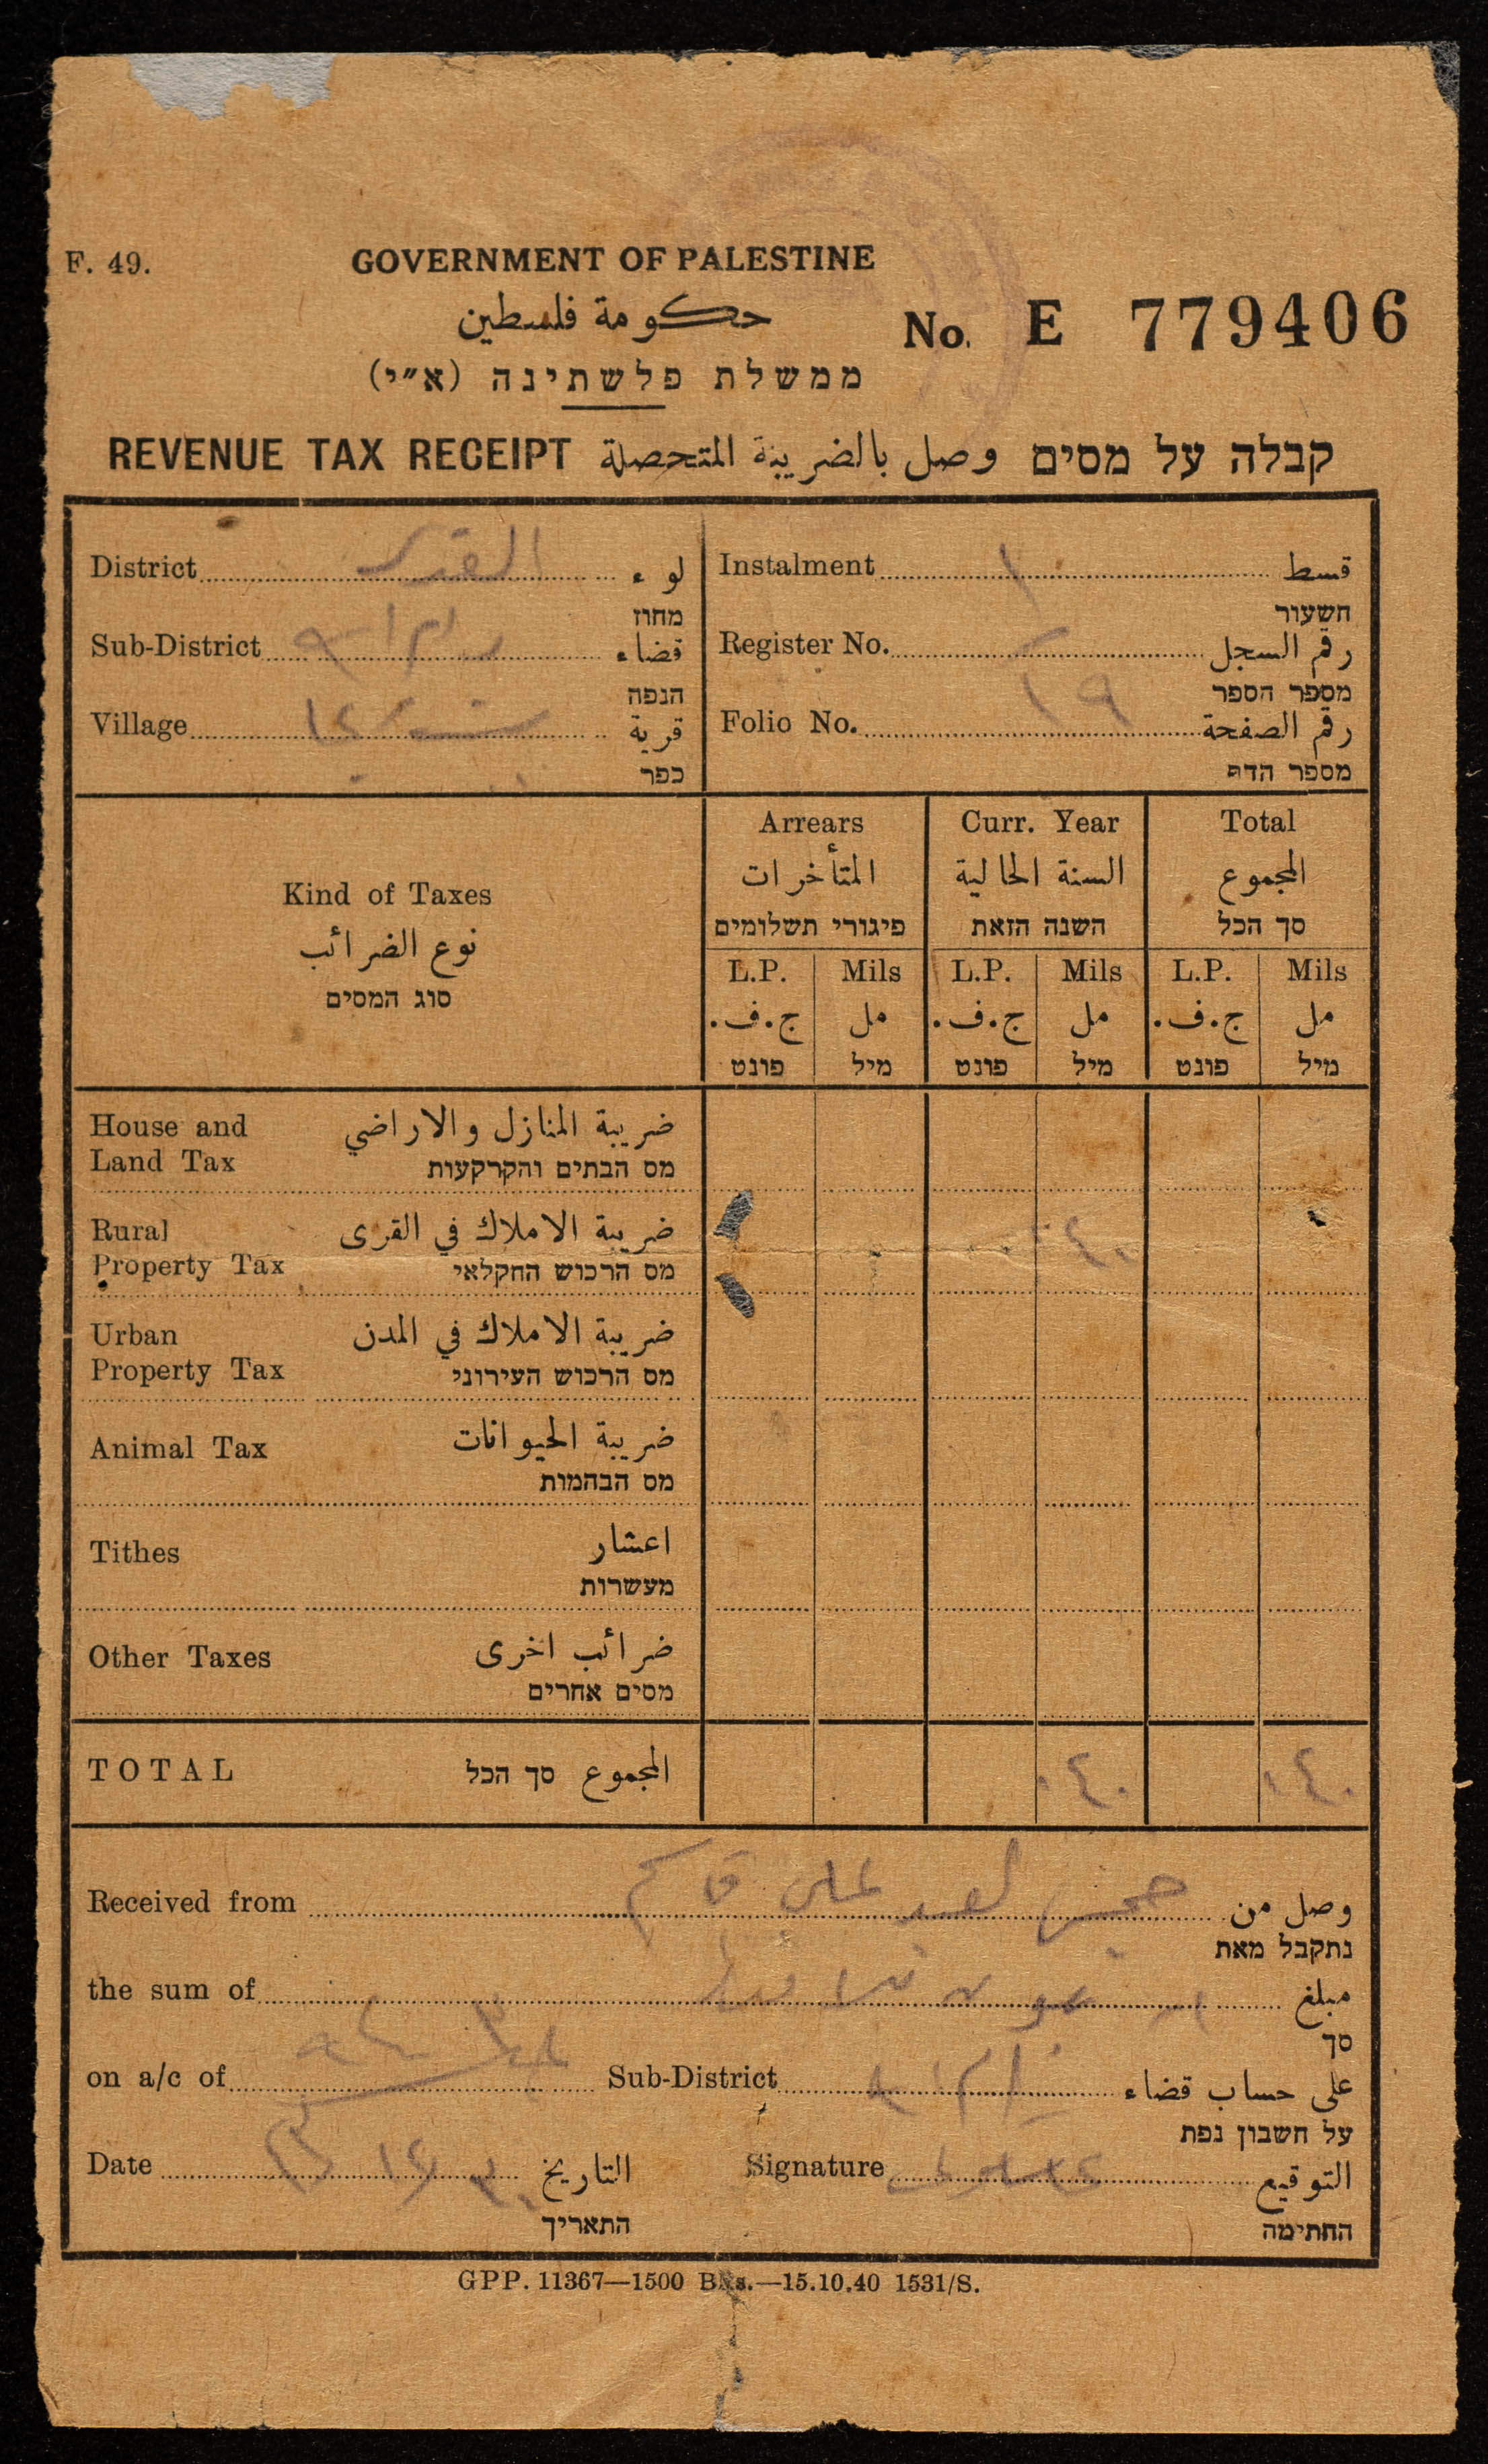 F. 49.
GOVERNMENT OF PALESTINE
حكومة فلسطين
No. E 779406
ממשלת פלשתינה (א״י)
REVENUE TAX RECEIPT وصل بالضريبة المتحصلة קבלה על מסים
District القدس لواء
מחוז
Sub-District رام الله قضاء
הנפה
Village قرية
כפר
Instalment ١ قسط
תשעור
Register No. رقم السجل
מספר הספר
Folio No. رقم الصفحة
מספר הדף
Kind of Taxes
نوع الضرائب
סוג המסים
Arrears
المتأخرات
פיגורי תשלומים
Curr. Year
السنة الحالية
השנה הזאת
Total
المجموع
סך הכל
L.P. Mils L.P. Mils L.P. Mils
ج.ف. مل ج.ف. مل ج.ف. مل
פונט מיל פונט מיל פונט מיל
House and ضريبة المنازل والاراضي
Land Tax מס הבתים והקרקעות
Rural ضريبة الاملاك في القرى ٠٤٠
Property Tax מס הרכוש החקלאי
Urban ضريبة الاملاك في المدن
Property Tax מס הרכוש העירוני
Animal Tax ضريبة الحيوانات
מס הבהמות
Tithes اعشار
מעשרות
Other Taxes ضرائب اخرى
מסים אחרים
TOTAL المجموع סך הכל ٠٤٠ ٠٤٠
Received from علي قاسم وصل من
נתקבל מאת
the sum of مبلغ
סך
on a/c of Sub-District رام الله على حساب قضاء
על חשבון נפת
Date التاريخ Signature التوقيع
התאריך החתימה
GPP. 11367—1500 Bks.—15.10.40 1531/S.